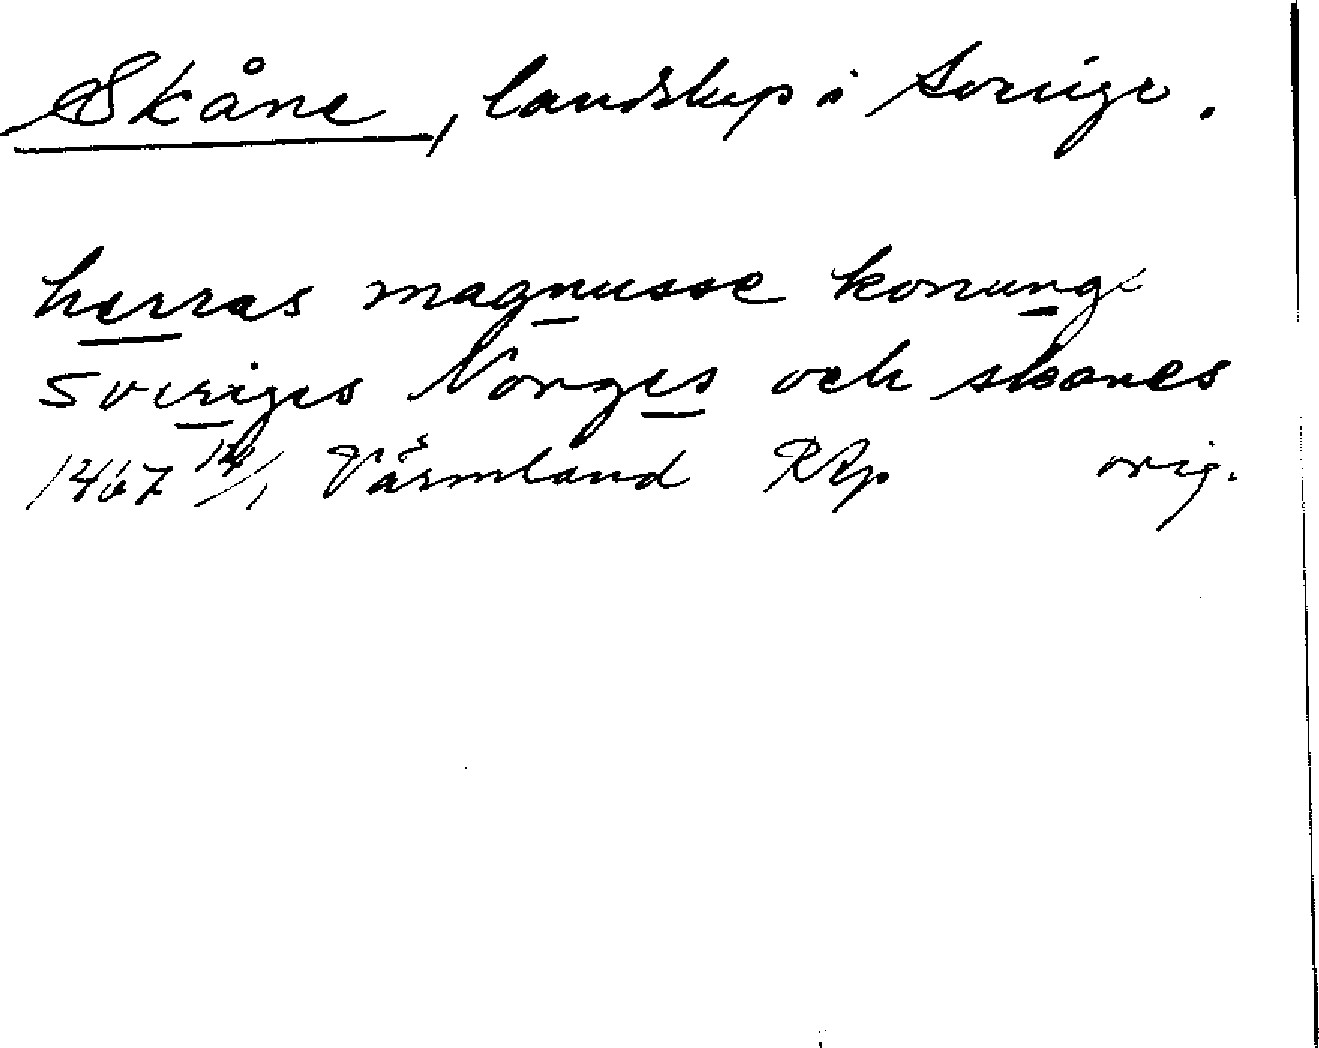 Skåne, landskap i Sverige.
herras magnusse konungs
sveriges Norges och skanes
1467 14/1 Värmland RAp orig.